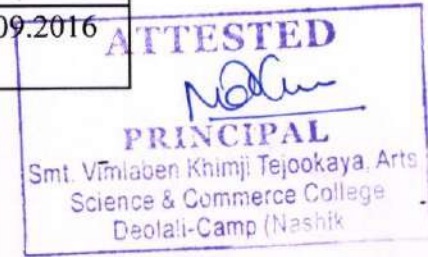 09.2016
ATTESTED
PRINCIPAL
Smt. Vimlaben Khimji Tejookaya, Arts
Science & Commerce College
Deolali-Camp (Nashik